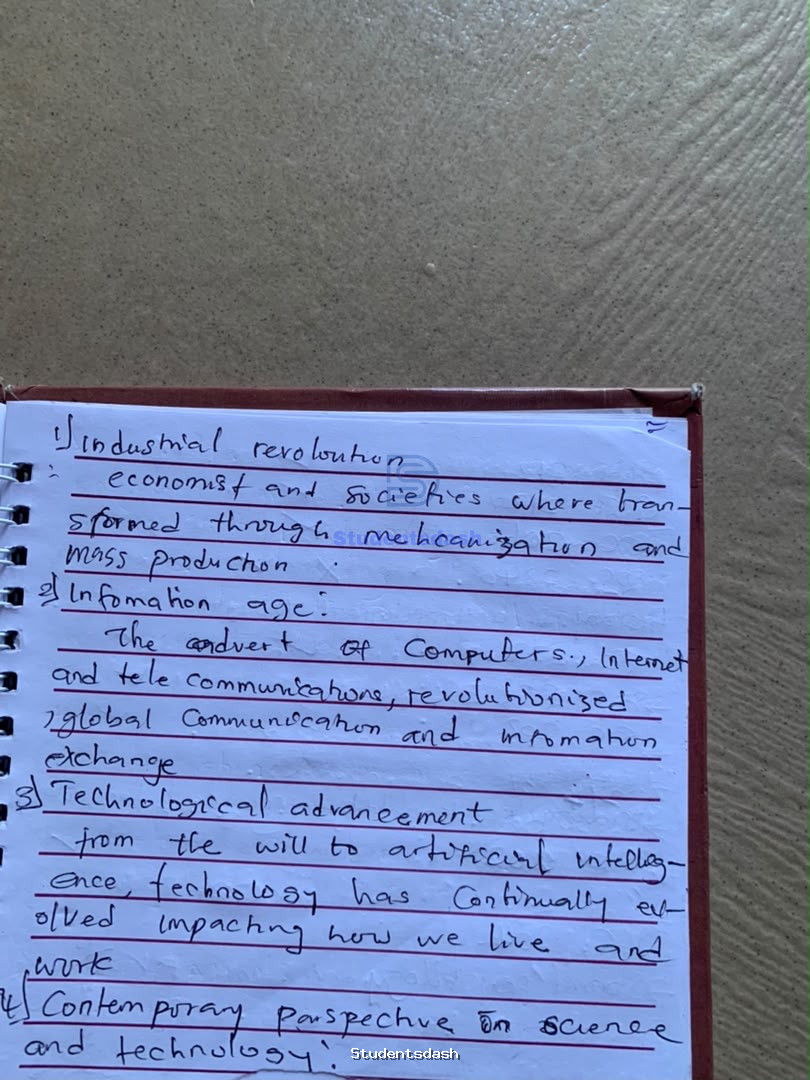 1) industrial revoloution
economist and societies where tran-
sformed through mehcanization and
mass production .
2) Infomation age:
The advert of Computers., Internet
and tele communications, revolutionized
global Communication and infomation
exchange
3) Technological advancement
from the will to artificial intelleg-
ence, technology has Continually ev-
olved impacting how we live and
work
4) Contemporary parspective on science
and technology:
Studentsdash
Studentsdash